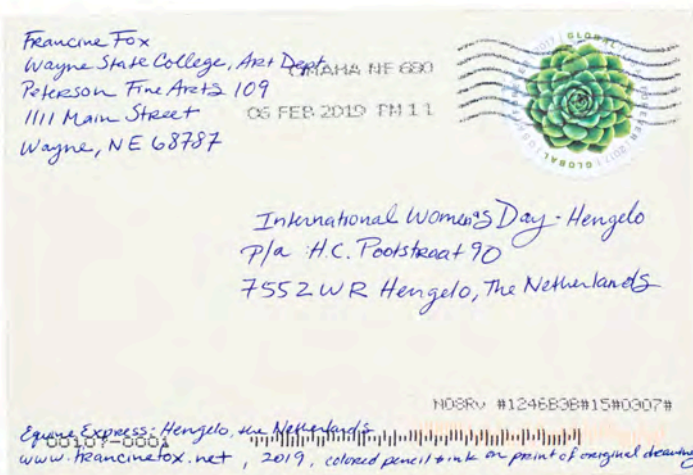 Francine Fox
Wayne State College, Art Dept.
Peterson Fine Arts 109
1111 Main Street
Wayne, NE 68787
OMAHA NE 680
06 FEB 2019 PM 11
2017 GLOBAL FOREVER 2017 GLOBAL
International Women's Day - Hengelo
p/a H.C. Pootstraat 90
7552 WR Hengelo, The Netherlands
N08Rv #1246B3B#15#0307#
Equine Express: Hengelo, the Netherlands
00107-0001
www.francinefox.net, 2019, colored pencil & ink on print of original drawing